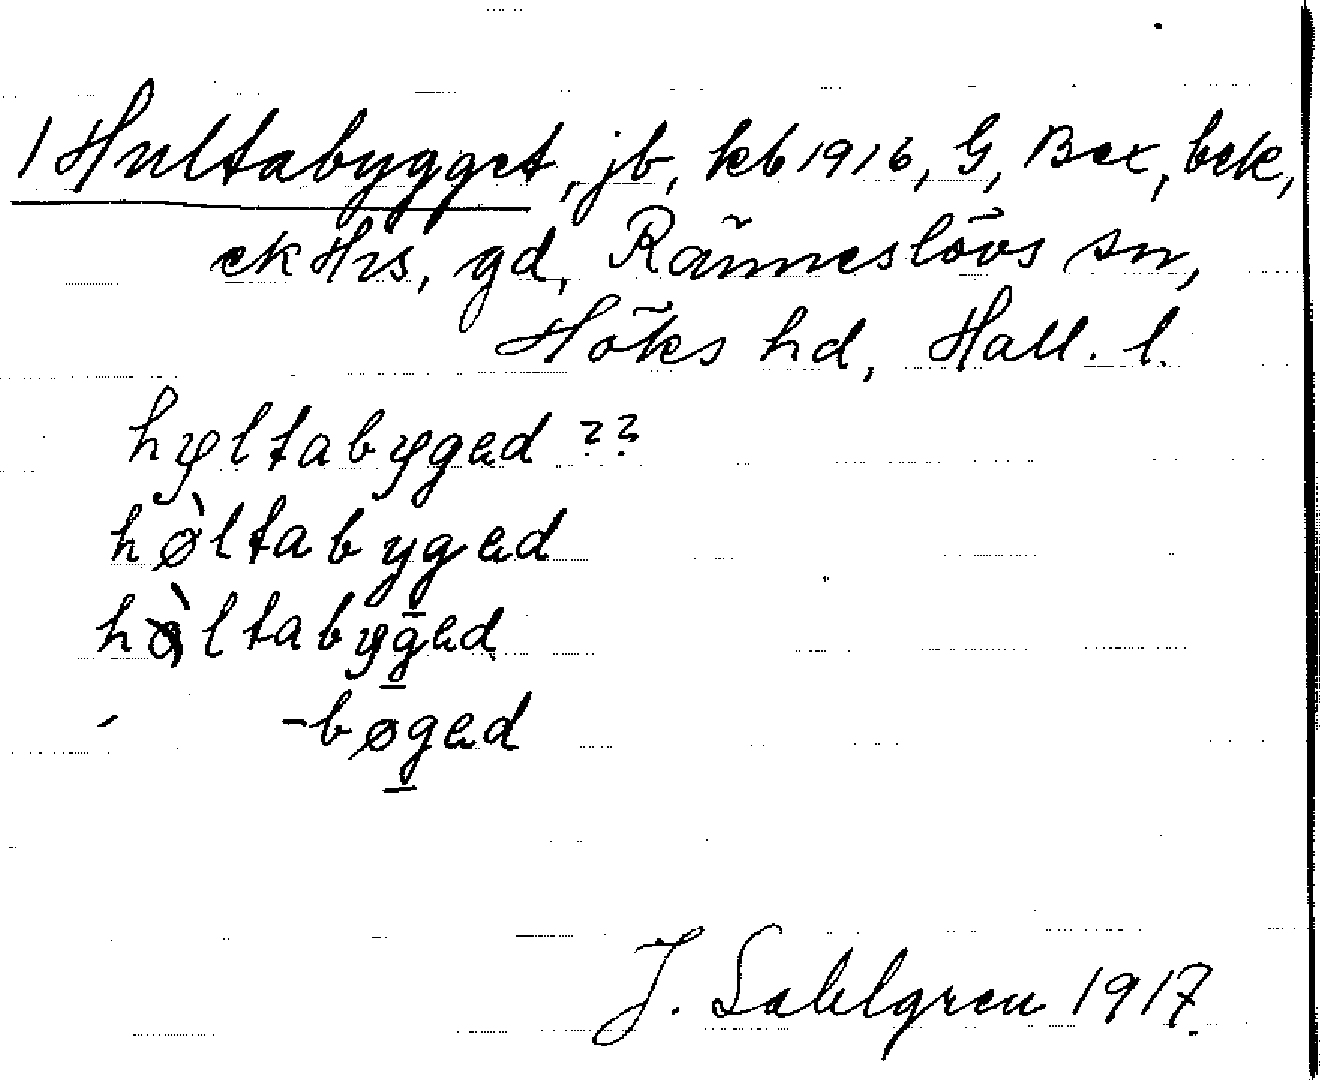 1 Hultabygget, jb, kb 1916, G, Bex, bek,
ek Hrs, gd, Ränneslövs sn,
Höks hd, Hall. l.
hyltabygad ??
høltabygad
hòltabygad
- -bøgad
J. Sahlgren 1917